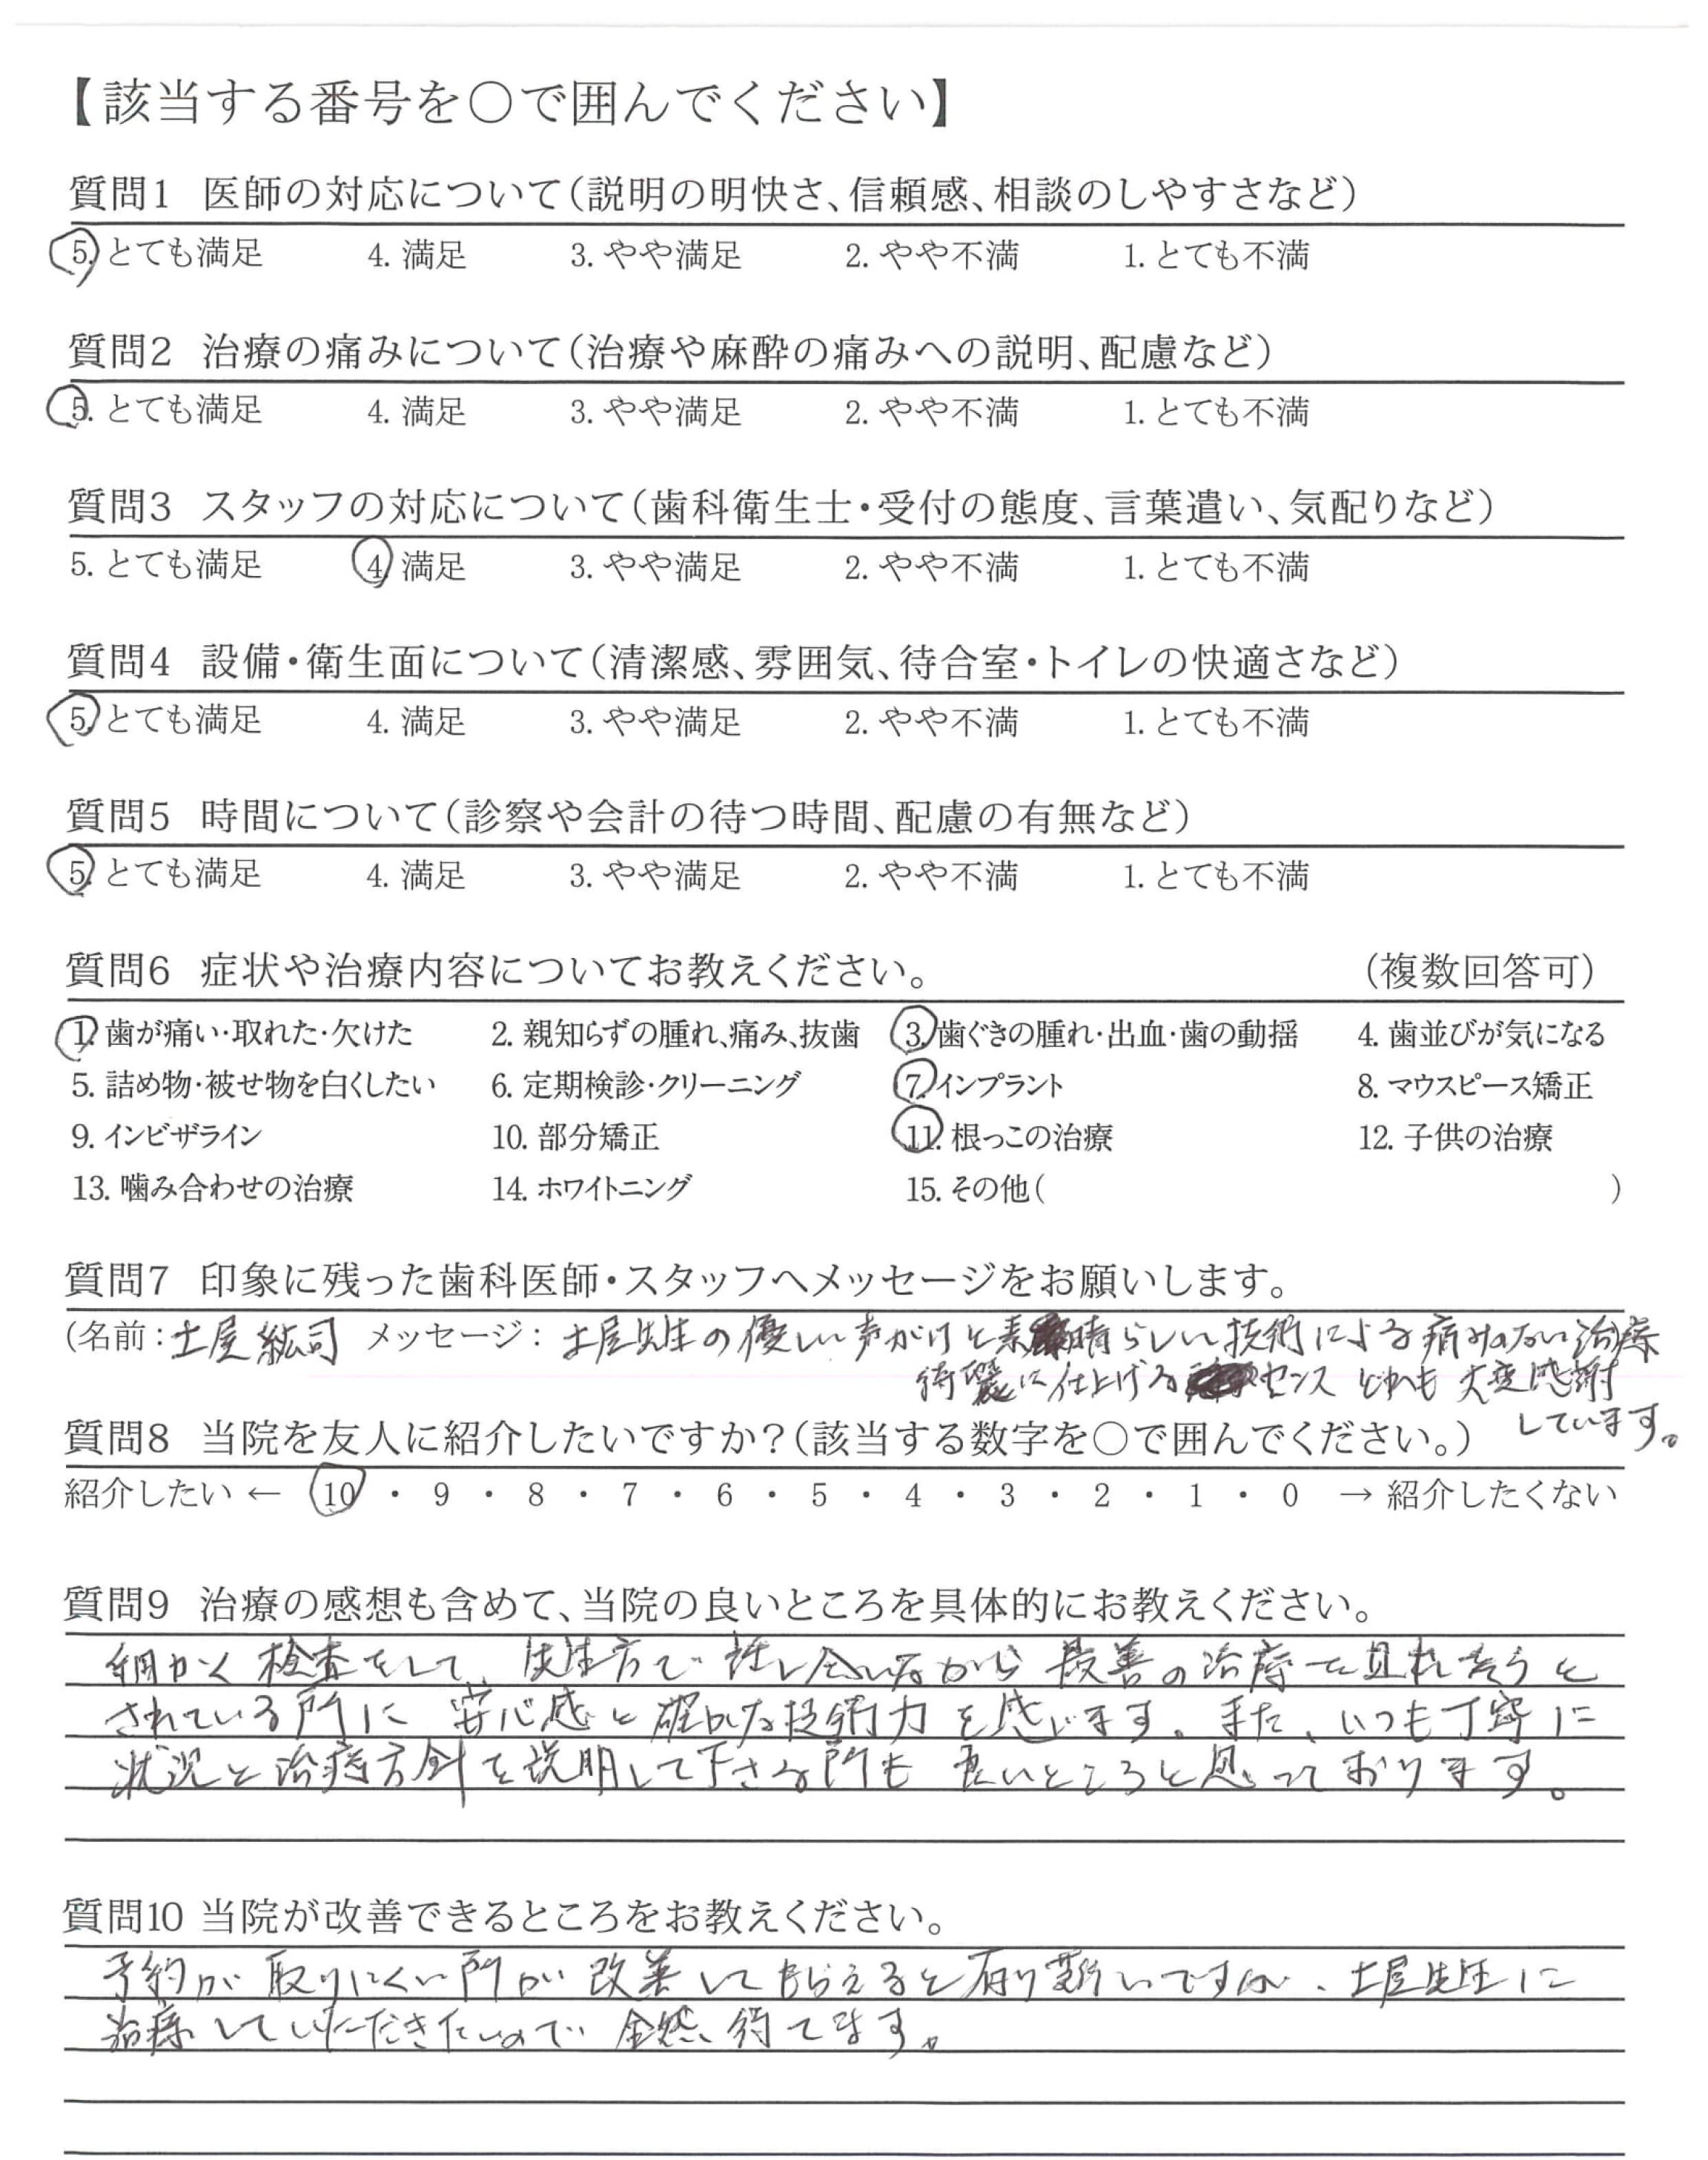 【該当する番号を〇で囲んでください】
質問1 医師の対応について(説明の明快さ、信頼感、相談のしやすさなど)
5. とても満足 4. 満足 3. やや満足 2. やや不満 1. とても不満
質問2 治療の痛みについて(治療や麻酔の痛みへの説明、配慮など)
5. とても満足 4. 満足 3. やや満足 2. やや不満 1. とても不満
質問3 スタッフの対応について(歯科衛生士・受付の態度、言葉遣い、気配りなど)
5. とても満足 4. 満足 3. やや満足 2. やや不満 1. とても不満
質問4 設備・衛生面について(清潔感、雰囲気、待合室・トイレの快適さなど)
5. とても満足 4. 満足 3. やや満足 2. やや不満 1. とても不満
質問5 時間について(診察や会計の待つ時間、配慮の有無など)
5. とても満足 4. 満足 3. やや満足 2. やや不満 1. とても不満
質問6 症状や治療内容についてお教えください。 (複数回答可)
1. 歯が痛い・取れた・欠けた 2. 親知らずの腫れ、痛み、抜歯 3. 歯ぐきの腫れ・出血・歯の動揺 4. 歯並びが気になる
5. 詰め物・被せ物を白くしたい 6. 定期検診・クリーニング 7. インプラント 8. マウスピース矯正
9. インビザライン 10. 部分矯正 11. 根っこの治療 12. 子供の治療
13. 噛み合わせの治療 14. ホワイトニング 15. その他( )
質問7 印象に残った歯科医師・スタッフへメッセージをお願いします。
(名前:土屋紘司 メッセージ: 土屋先生の優しい声がけと素晴らしい技術による痛みのない治療
綺麗に仕上げるセンス どれも大変感謝
しています。
質問8 当院を友人に紹介したいですか?(該当する数字を〇で囲んでください。)
紹介したい ← 10 ・ 9 ・ 8 ・ 7 ・ 6 ・ 5 ・ 4 ・ 3 ・ 2 ・ 1 ・ 0 → 紹介したくない
質問9 治療の感想も含めて、当院の良いところを具体的にお教えください。
細かく検査をして、先生方で話し合いながら最善の治療をされようと
されている所に安心感と確かな技術力を感じます。また、いつも丁寧に
状況と治療方針を説明して下さる所も良いところと思っております。
質問10 当院が改善できるところをお教えください。
予約が取りにくい所が改善してもらえると有り難いですが、土屋先生に
治療していただきたいので全然待てます。